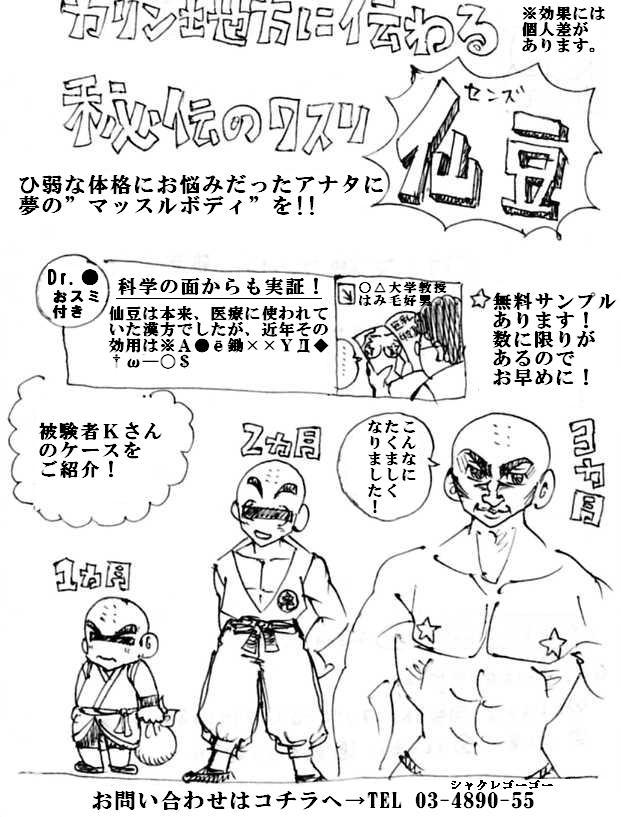 カリン土地方に伝わる
※効果には
個人差が
あります。
秘伝のクスリ
センズ
仙豆
ひ弱な体格にお悩みだったアナタに
夢の”マッスルボディ”を!!
Dr.●
おスミ
付き
科学の面からも実証！
仙豆は本来、医療に使われて
いた漢方でしたが、近年その
効用は※A●ё鋤××YД◆
†ω―○$
○△大学教授
はみ毛好男
☆無料サンプル
あります！
数に限りが
あるので
お早めに！
被験者Kさん
のケースを
ご紹介！
1ヵ月
2ヵ月
こんなに
たくましく
なりました！
3ヵ月
シャクレゴーゴー
お問い合わせはコチラへ→TEL 03-4890-55